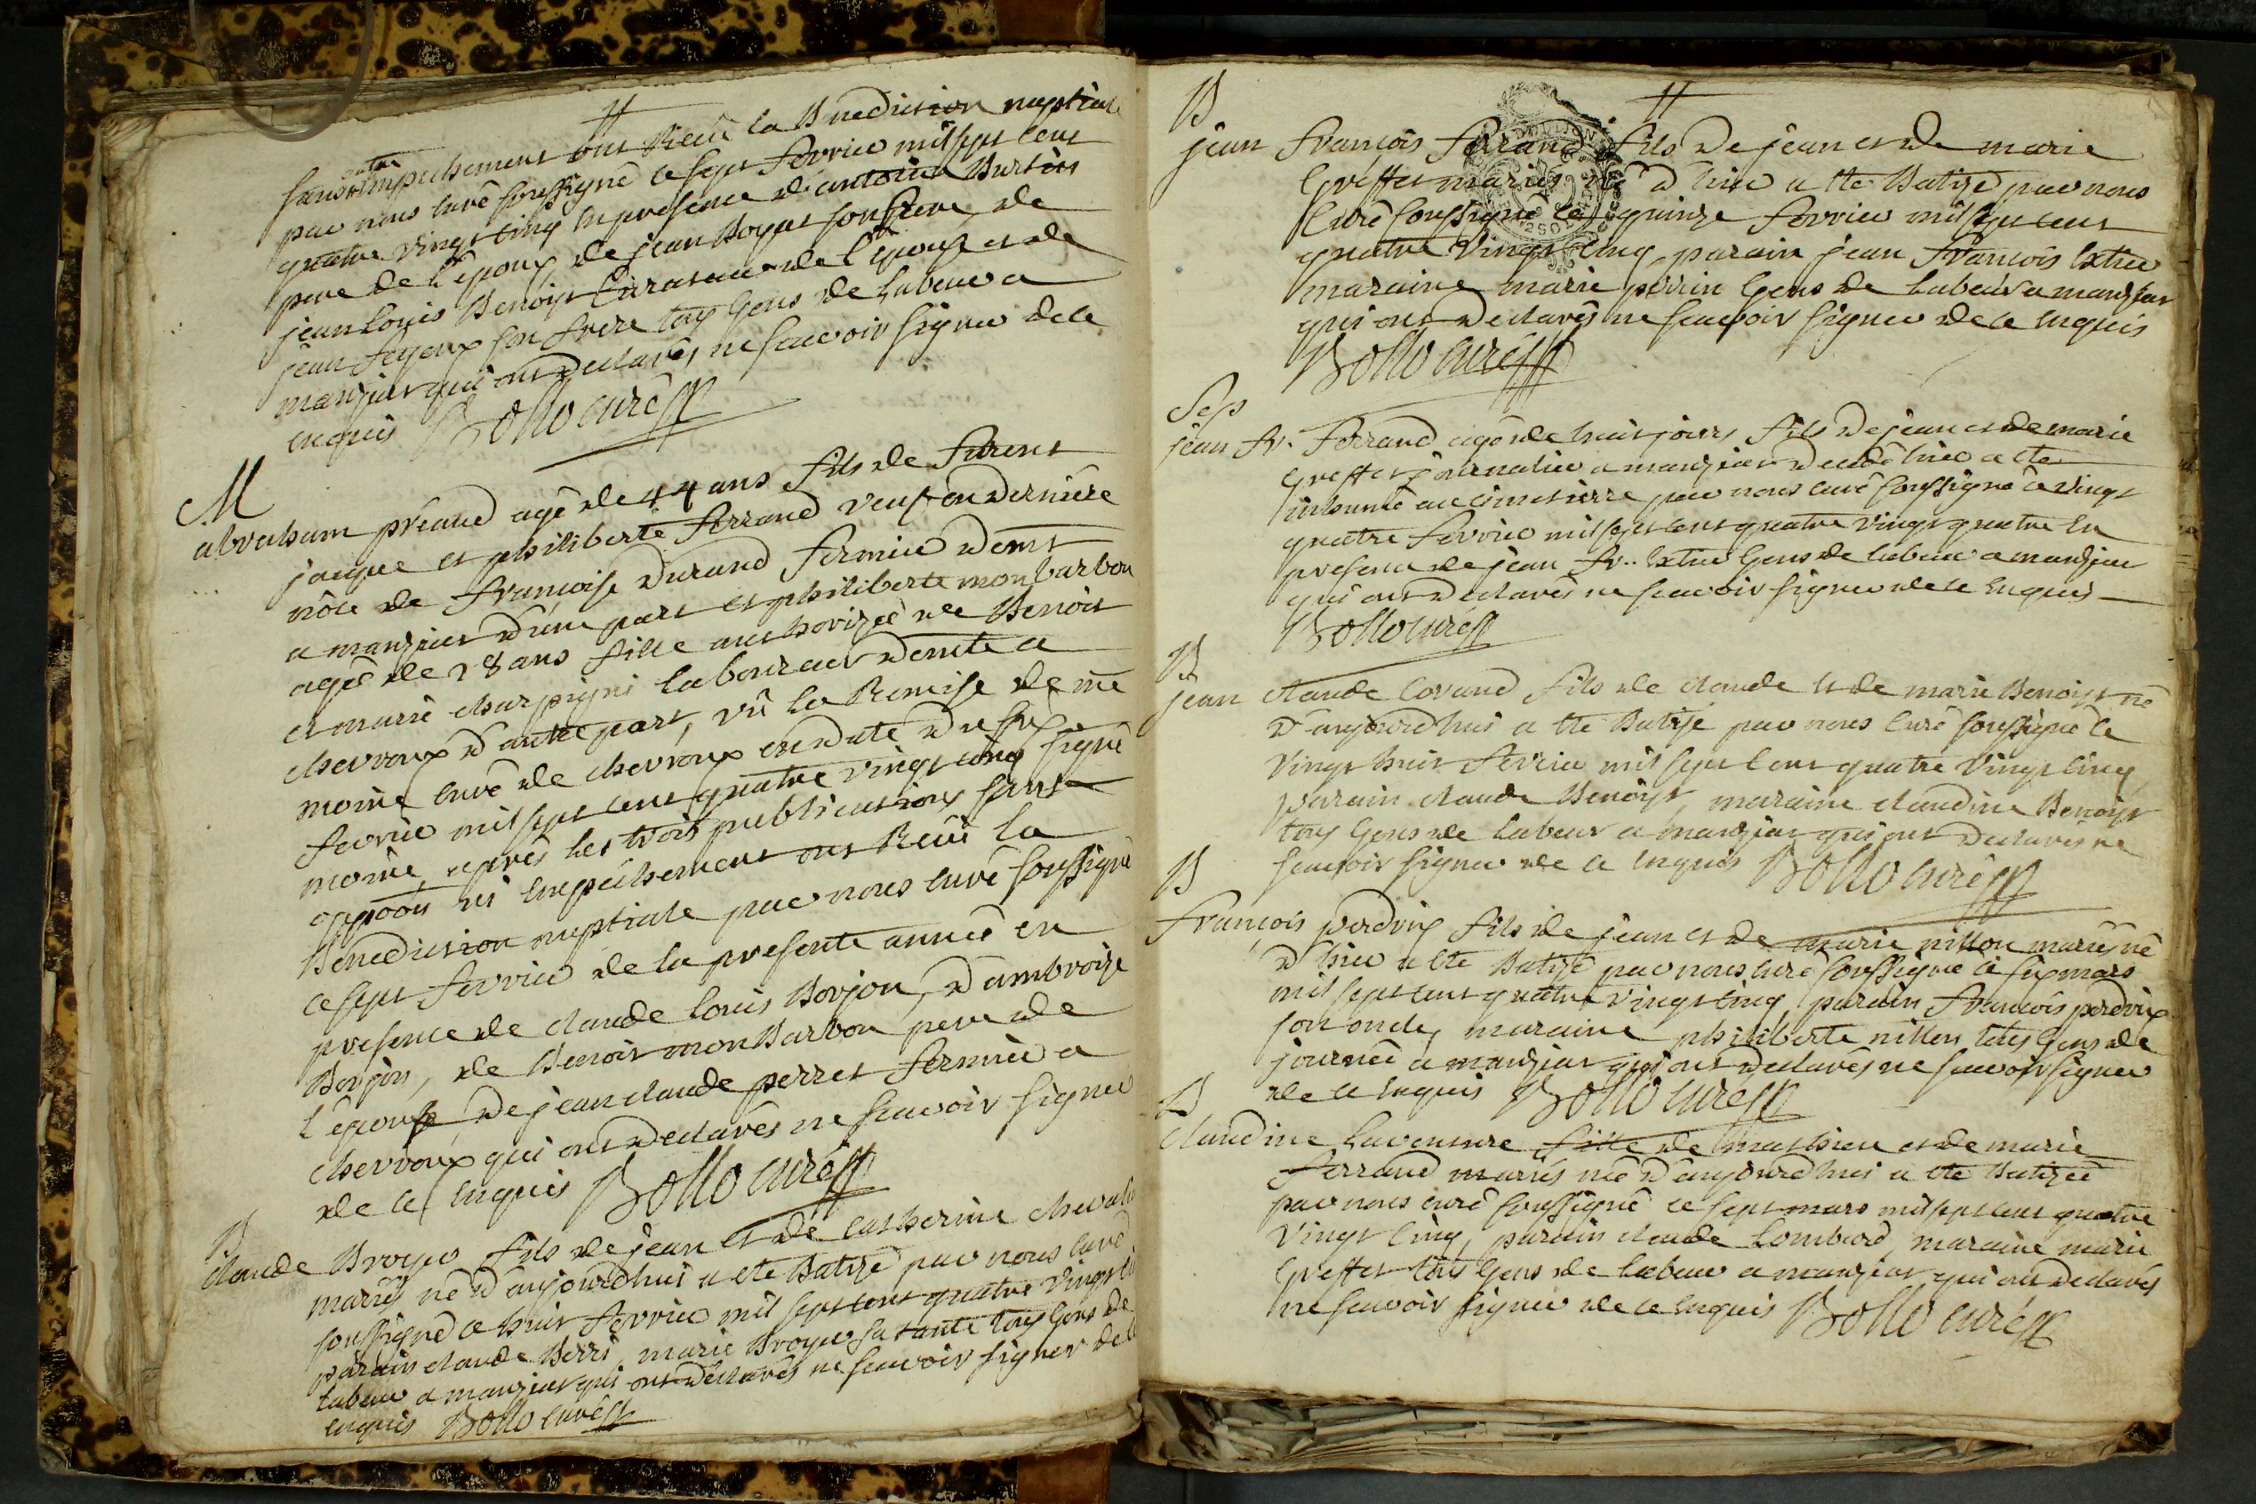 sans autre Empechement ont Recû la Benediction nuptiale
par nous curé soussigné ce sept fevrier mil sept cent
quatre vingt cinq En presence d'antoine Burtin
pere de l'epoux, de jean Boyat son frere, de
jean louis Benoist curateur de l'epouse et de
jean feyeux son frere tous gens de labeur a
manziat qui ont declarés ne scavoir signer de ce
enquis Bollo curé
M
abraham préaud agé de 44 ans fils de furent
jacque et philiberte ferrand veuf en derniere
nôce de francoise durand fermier demt
a manziat d'une part et philiberte monbarbon
agée de 28 ans fille authorizée de Benoit
et marie charpigni laboureur demte a
chevroux d'autre part, vû la Remise de me
moine curé de chevroux en date du six
fevrier mil sept cent quatre vingt cinq signé
moine, après les trois publications sans
oppoon ni Empechement ont Recû la
Benediction nuptiale par nous curé soussigné
ce sept fevrier de la presente année en
presence de claude louis Borjon, d'ambroize
Borjon, de Benoit monbarbon pere de
l'epouse de jean claude perret fermier a
chevroux qui ont declarés ne scavoir signer
de ce Enquis Bollo curé
B
claude Broyer fils de jean et de catherine chevali
mariés né d'aujourdhui a ete Batizé par nous curé
soussigné ce huit fevrier mil sept cent quatre vingt
parain claude Berri, marie Broyer sa tante tous gens de
labeur a manziat qui ont declarés ne scavoir signer de ce
enquis Bollo curé
B
jean françois ferrand fils de jean et de marie
Greffet mariés né d'hier a ete Batizé par nous
Curé soussigné ce quinze fevrier mil sept cent
quatre vingt cinq, parain jean francois
maraine marie perrin Gens de labeur a manziat
qui ont declarés ne scavoir signer de ce Enquis
Bollo curé
Sep
jean fr. ferrand agé de huit jours fils de jean et de marie
Greffet journalier a manziat decedé hier a ete
inhumé au cimetierre par nous curé soussigné ce vingt
quatre fevrier mil sept cent quatre vingt quatre En
presence de jean fr.. Gens de labeur a manziat
qui ont declarés ne scavoir signer de ce Enquis
Bollo curé
B
jean claude lorand fils de claude et de marie Benoist né
d'aujourdhui a ete Batizé par nous Curé soussigné ce
vingt huit fevrier mil sept cent quatre vingt cinq
parain claude Benoist, maraine claudine Benoist
tous Gens de labeur a manziat qui ont declarés ne
scavoir signer de ce Enquis Bollo curé
B
François perdrix fils de jean et de marie nillon mariés né
d'hier a ete Batizé par nous curé soussigné ce six mars
mil sept cent quatre vingt cinq, parain francois perdrix
son oncle, maraine philiberte nillon tous Gens de
journée a manziat qui ont declarés ne scavoir signer
de ce Enquis Bollo curé
B
claudine laventure fille de mathieu et de marie
ferrand mariés née d'aujourdhui a ete Batizée
par nous curé soussigné ce sept mars mil sept cent quatre
vingt cinq, parain claude lombard, maraine marie
Greffet tous Gens de labeur a manziat qui ont declarés
ne scavoir signer de ce Enquis Bollo curé